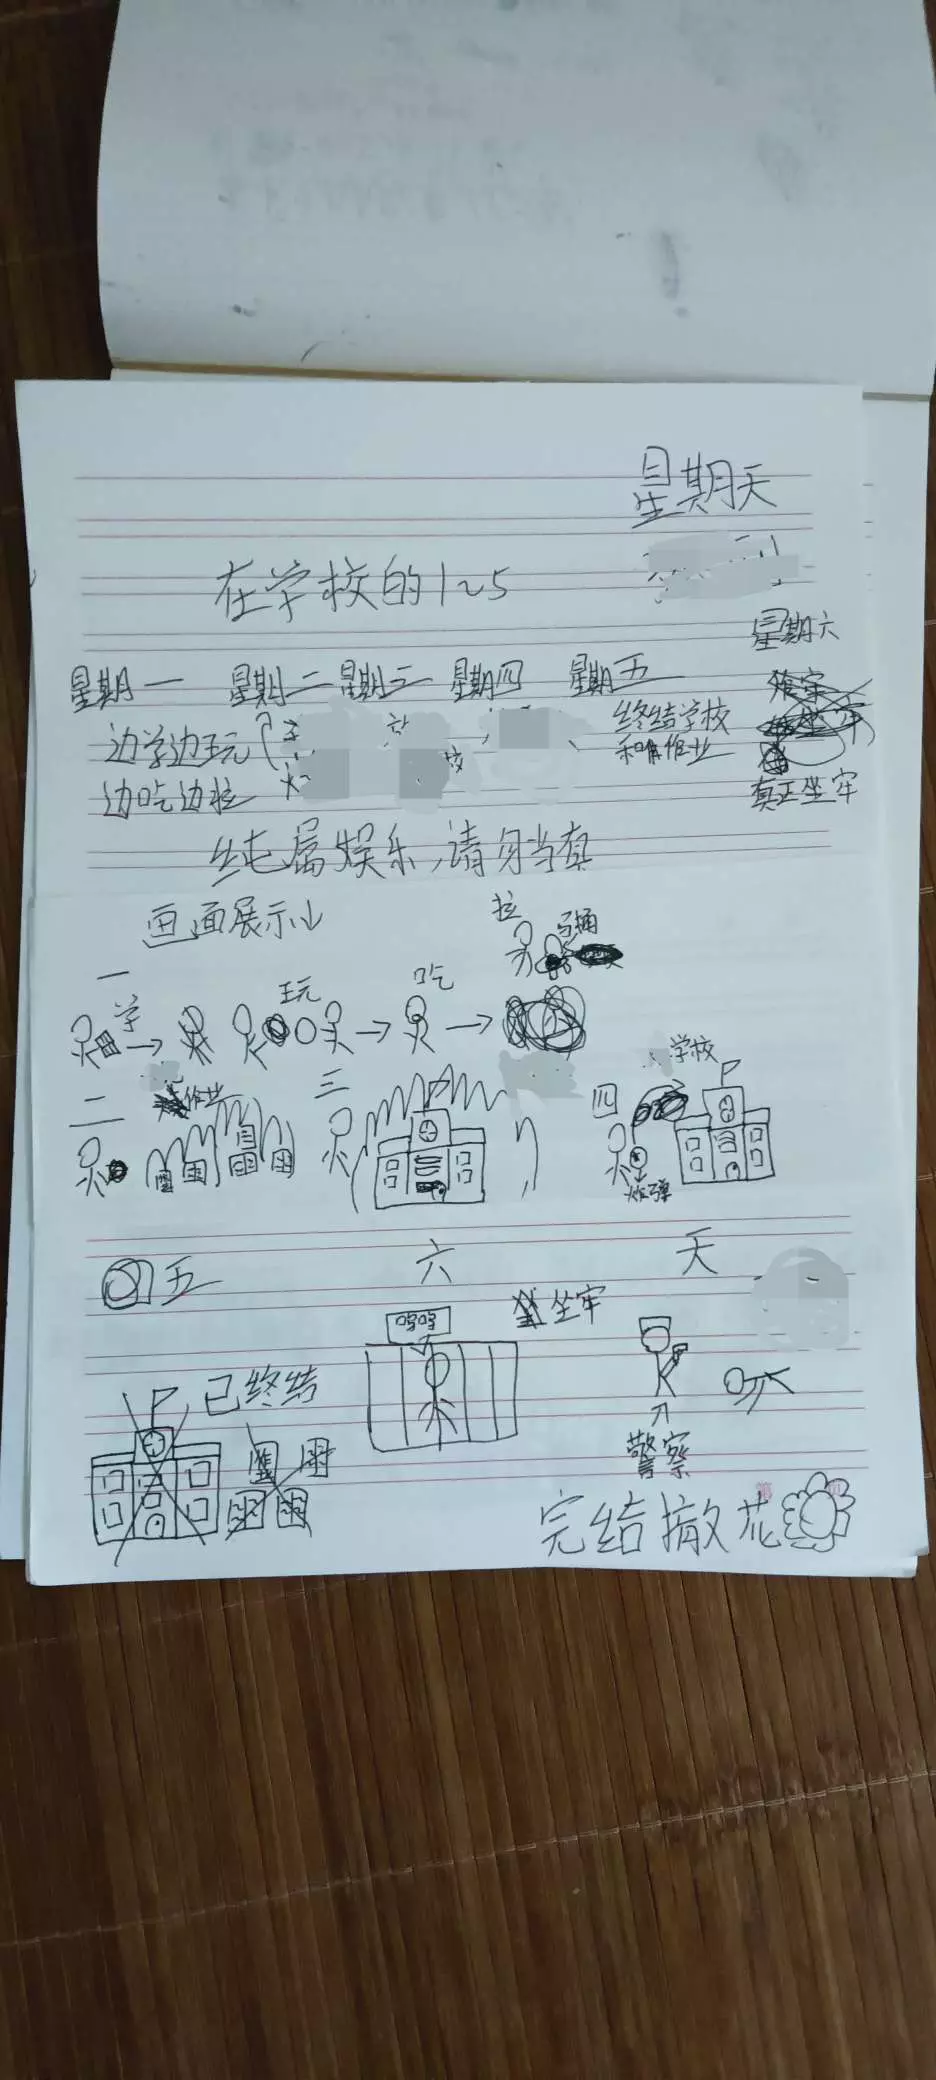 星期天
在学校的1~5
星期六
星期一 星期二 星期三 星期四 星期五
边学边玩
终结学校
和作业
边吃边拉
真正坐牢
纯属娱乐,请勿当真
画面展示↓
拉
马桶
一
学 玩 吃
二 作业
三
四
学校
炸弹
五 六 天
呜呜
坐牢
已终结
警察
完结撒花